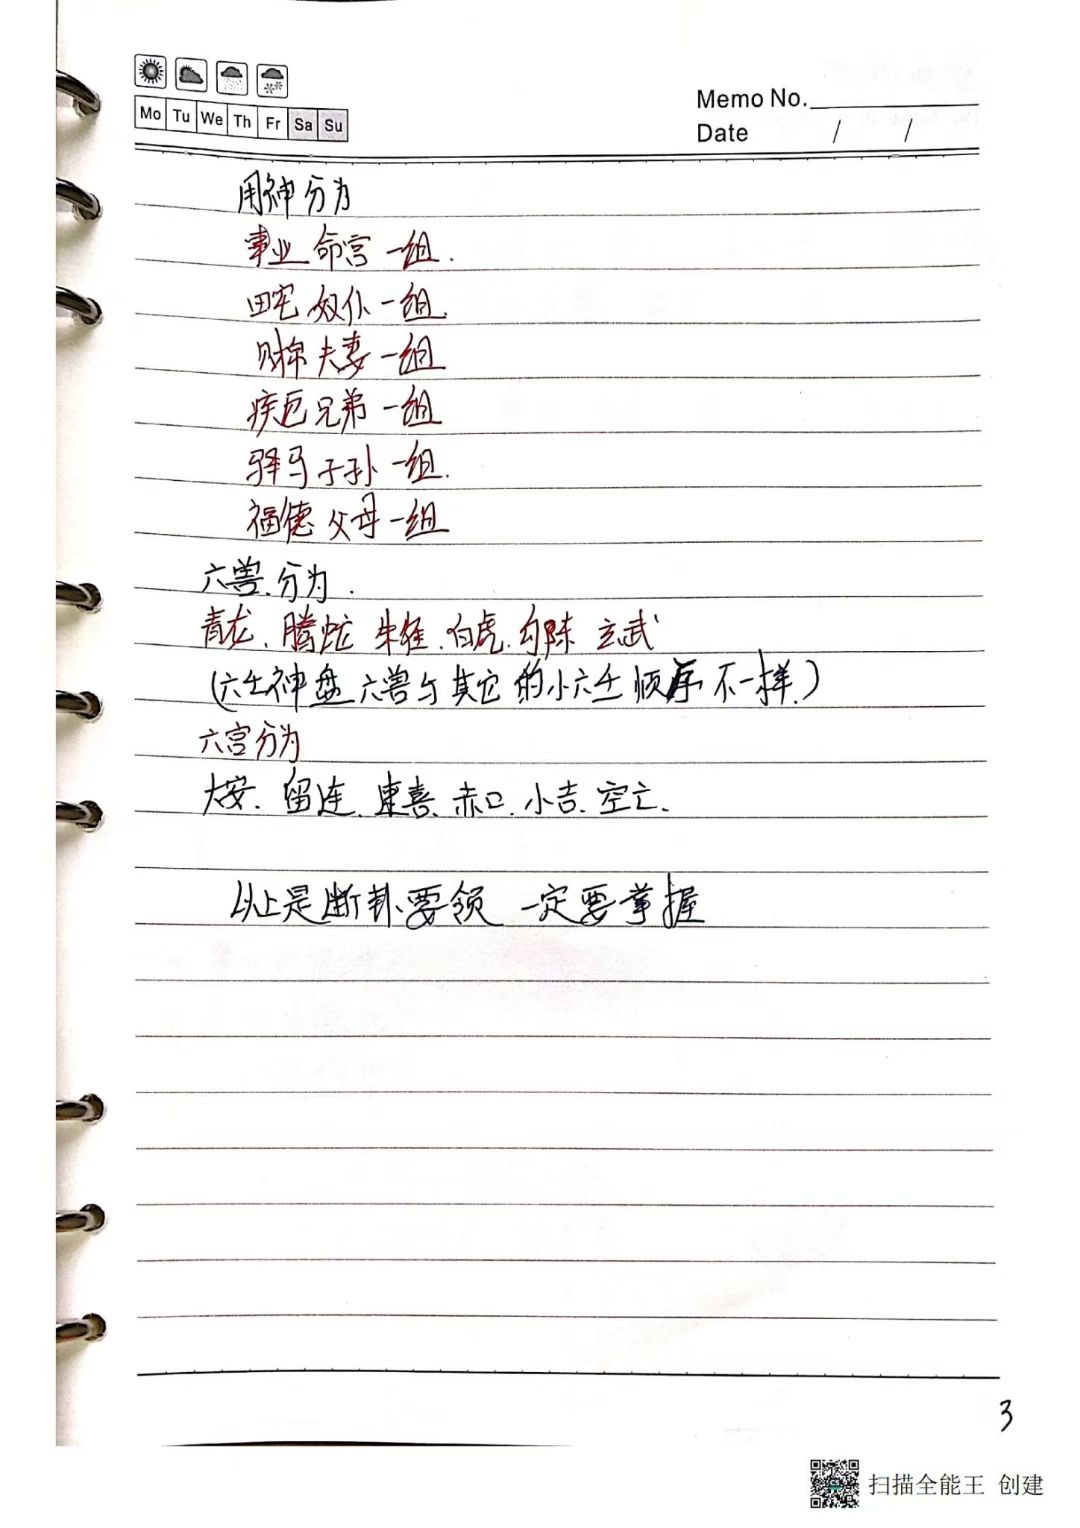 Mo Tu We Th Fr Sa Su
Memo No.
Date / /
用神分为
事业 命宫 一组.
田宅 奴仆 一组.
财帛 夫妻 一组
疾厄 兄弟 一组
驿马 子孙 一组.
福德 父母 一组
六兽.分为.
青龙、腾蛇 朱雀.白虎.勾陈 玄武
(六壬神盘六兽与其它的小六壬顺序不一样.)
六宫分为
大安.留连.速喜、赤口.小吉.空亡.
以上是断卦要领 一定要掌握
3
扫描全能王 创建